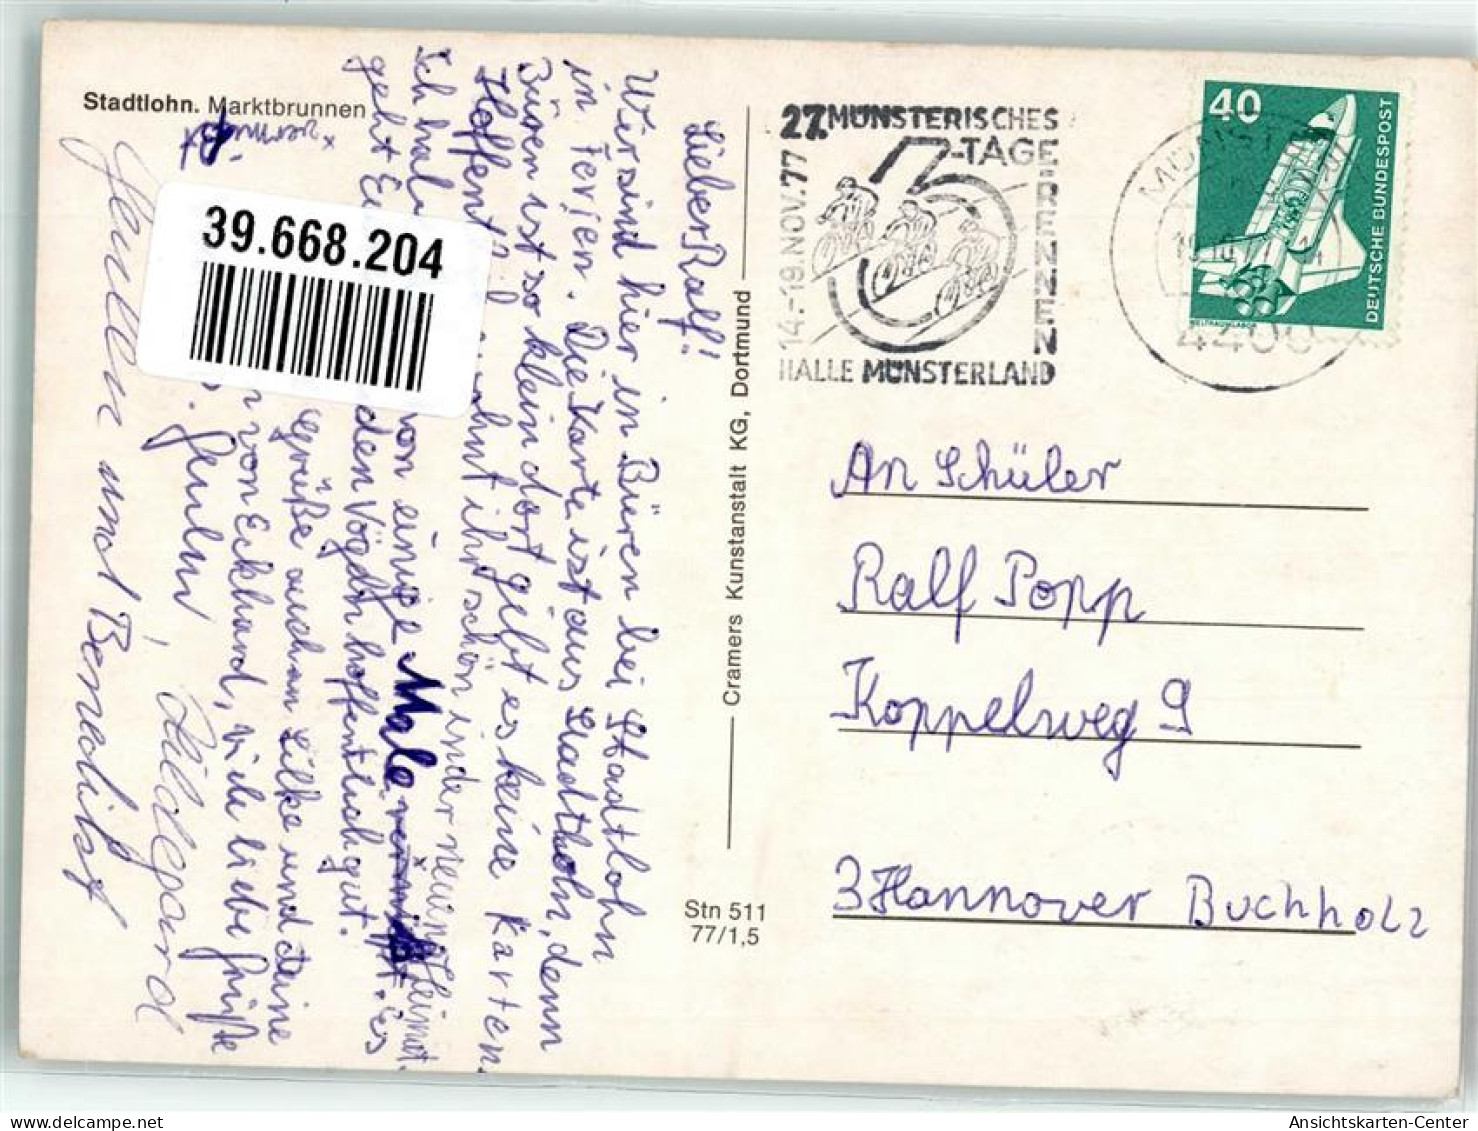 Stadtlohn. Marktbrunnen
x vermißt
39.668.204
Lieber Ralf!
Wir sind hier in Büren bei Stadtlohn
in Ferien. Die Karte ist aus Stadtlohn, denn
Büren ist so klein dort gibt es keine Karten
Hoffentl ihr schön in der neuen Heimat.
Ich hab von einige Male x
geht Eu den Vögeln hoffentlich gut. Es
grüße auch an Silke und deine
von Eckhard, viele liebe Grüße
Hildegard
und Benedikt
Cramers Kunstanstalt KG, Dortmund
Stn 511
77/1,5
27. MÜNSTERISCHES
6-TAGE
RENNEN
14.-19. NOV. 77
HALLE MÜNSTERLAND
4400
40
DEUTSCHE BUNDESPOST
WELTRAUMLABOR
An Schüler
Ralf Popp
Koppelweg 9
3 Hannover Buchholz
Ansichtskarten-Center
delcampe.net